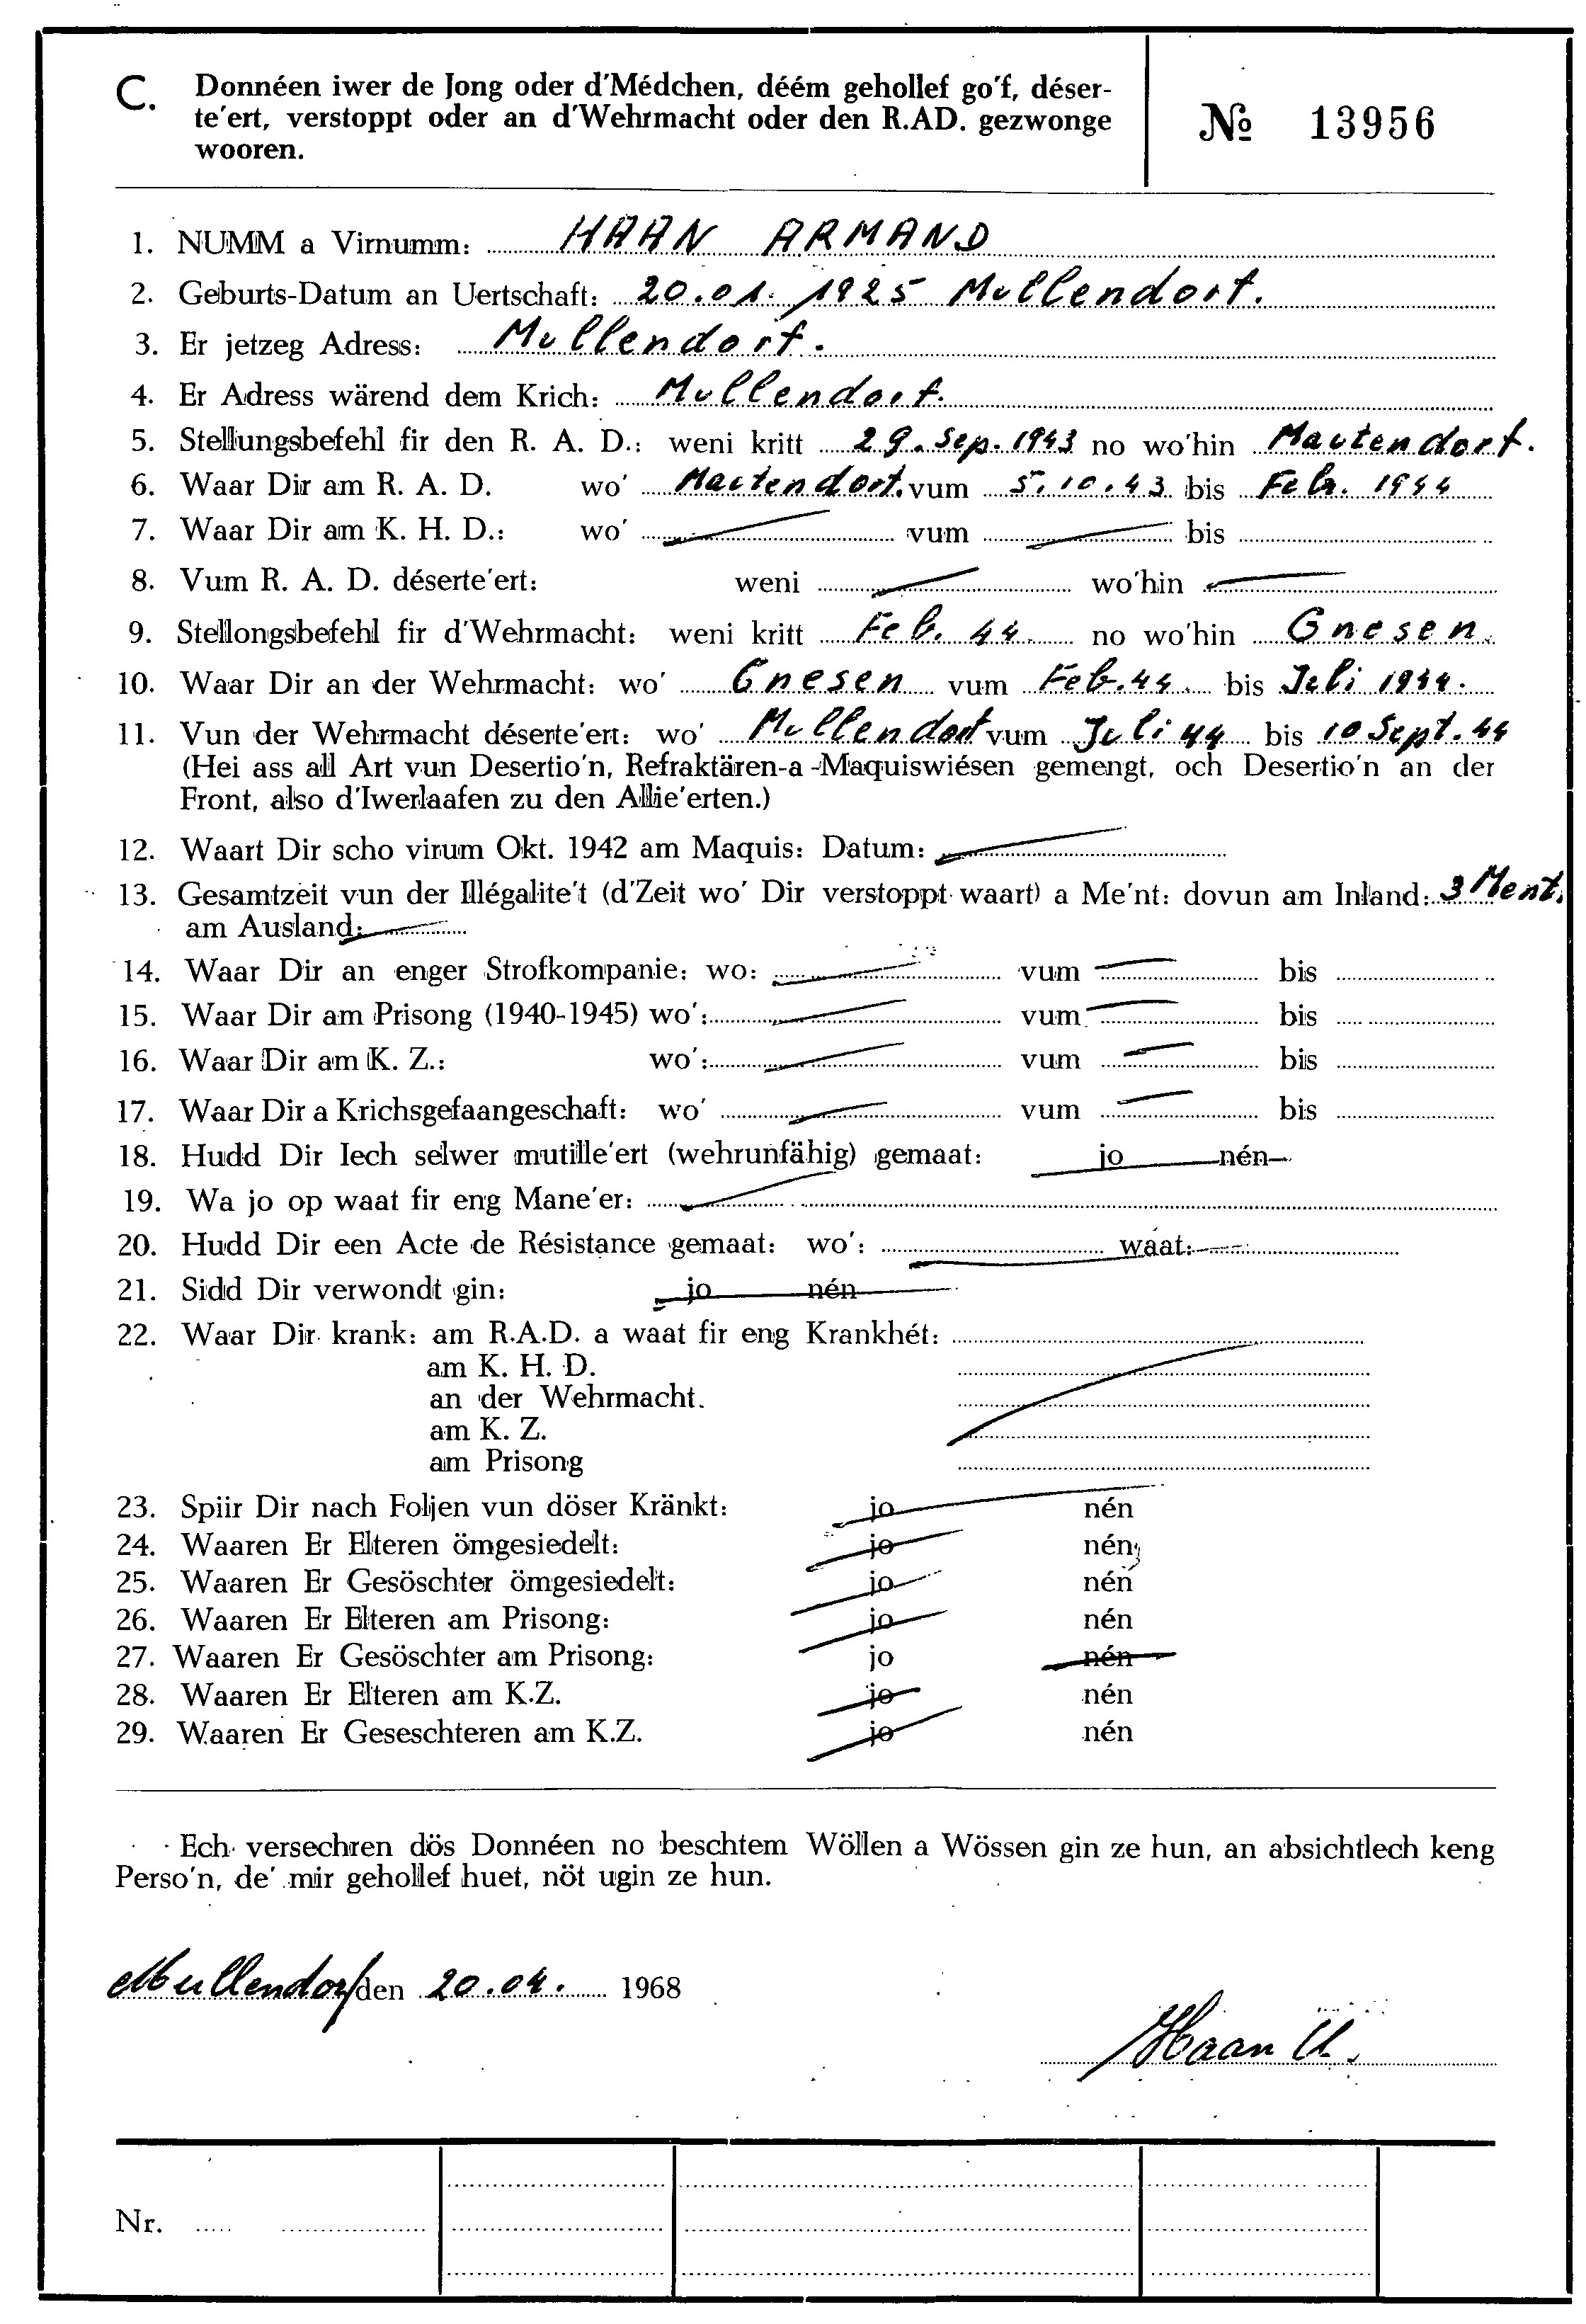 C. Donnéen iwer de Jong oder d'Médchen, déém gehollef go'f, déser-
te'ert, verstoppt oder an d'Wehrmacht oder den R.AD. gezwonge
wooren.
№ 13956
1. NUMM a Virnumm: HAAN ARMAND
2. Geburts-Datum an Uertschaft: 20.01.1925 Mullendorf.
3. Er jetzeg Adress: Mullendorf.
4. Er Adress wärend dem Krich: Mullendorf.
5. Stellungsbefehl fir den R. A. D.: weni kritt 29. Sep. 1943 no wo'hin Mautendorf.
6. Waar Dir am R. A. D. wo' Mautendorf. vum 5.10.43 bis Feb. 1944
7. Waar Dir am K. H. D.: wo' vum bis
8. Vum R. A. D. déserte'ert: weni wo'hin
9. Stellongsbefehl fir d'Wehrmacht: weni kritt Feb. 44. no wo'hin Gnesen.
10. Waar Dir an der Wehrmacht: wo' Gnesen vum Feb. 44. bis Juli 1944.
11. Vun der Wehrmacht déserte'ert: wo' Mullendorf vum Juli 44 bis 10 Sept. 44
(Hei ass all Art vun Desertio'n, Refraktären-a-Maquiswiésen gemengt, och Desertio'n an der
Front, also d'Iwerlaafen zu den Allie'erten.)
12. Waart Dir scho virum Okt. 1942 am Maquis: Datum:
13. Gesamtzeit vun der Illégalite't (d'Zeit wo' Dir verstoppt waart) a Me'nt: dovun am Inland: 3 Ment.
am Ausland:
14. Waar Dir an enger Strofkompanie: wo: vum bis
15. Waar Dir am Prisong (1940-1945) wo': vum bis
16. Waar Dir am K. Z.: wo': vum bis
17. Waar Dir a Krichsgefaangeschaft: wo' vum bis
18. Hudd Dir Iech selwer mutille'ert (wehrunfähig) gemaat: jo nén
19. Wa jo op waat fir eng Mane'er:
20. Hudd Dir een Acte de Résistance gemaat: wo': waat:
21. Sidd Dir verwondt gin: jo nén
22. Waar Dir krank: am R.A.D. a waat fir eng Krankhét:
am K. H. D.
an der Wehrmacht.
am K. Z.
am Prisong
23. Spiir Dir nach Foljen vun döser Kränkt: jo nén
24. Waaren Er Elteren ömgesiedelt: jo nén
25. Waaren Er Gesöschter ömgesiedelt: jo nén
26. Waaren Er Elteren am Prisong: jo nén
27. Waaren Er Gesöschter am Prisong: jo nén
28. Waaren Er Elteren am K.Z. jo nén
29. Waaren Er Geseschteren am K.Z. jo nén
Ech versechren dös Donnéen no beschtem Wöllen a Wössen gin ze hun, an absichtlech keng
Perso'n, de' mir gehollef huet, nöt ugin ze hun.
Mullendorf den 20.04. 1968
Haan A.
Nr.